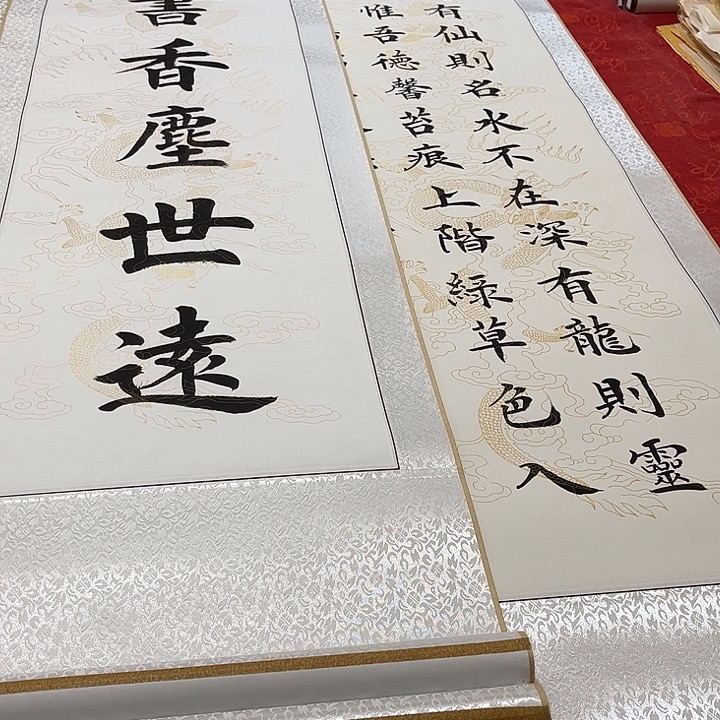 有仙則名水不在深有龍則靈
惟吾德馨苔痕上階綠草色入
書香塵世遠